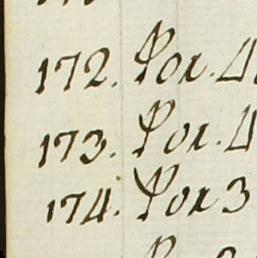 172. Por. 4
173. Por. 4
174. Por 3